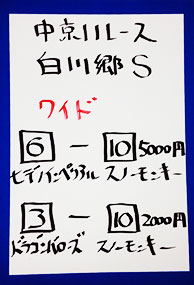 中京11レース
白川郷S
ワイド
6 ー 10 5000円
セブンペンタゴン スノーモンキー
3 ー 10 2000円
ドラゴンバローズ スノーモンキー